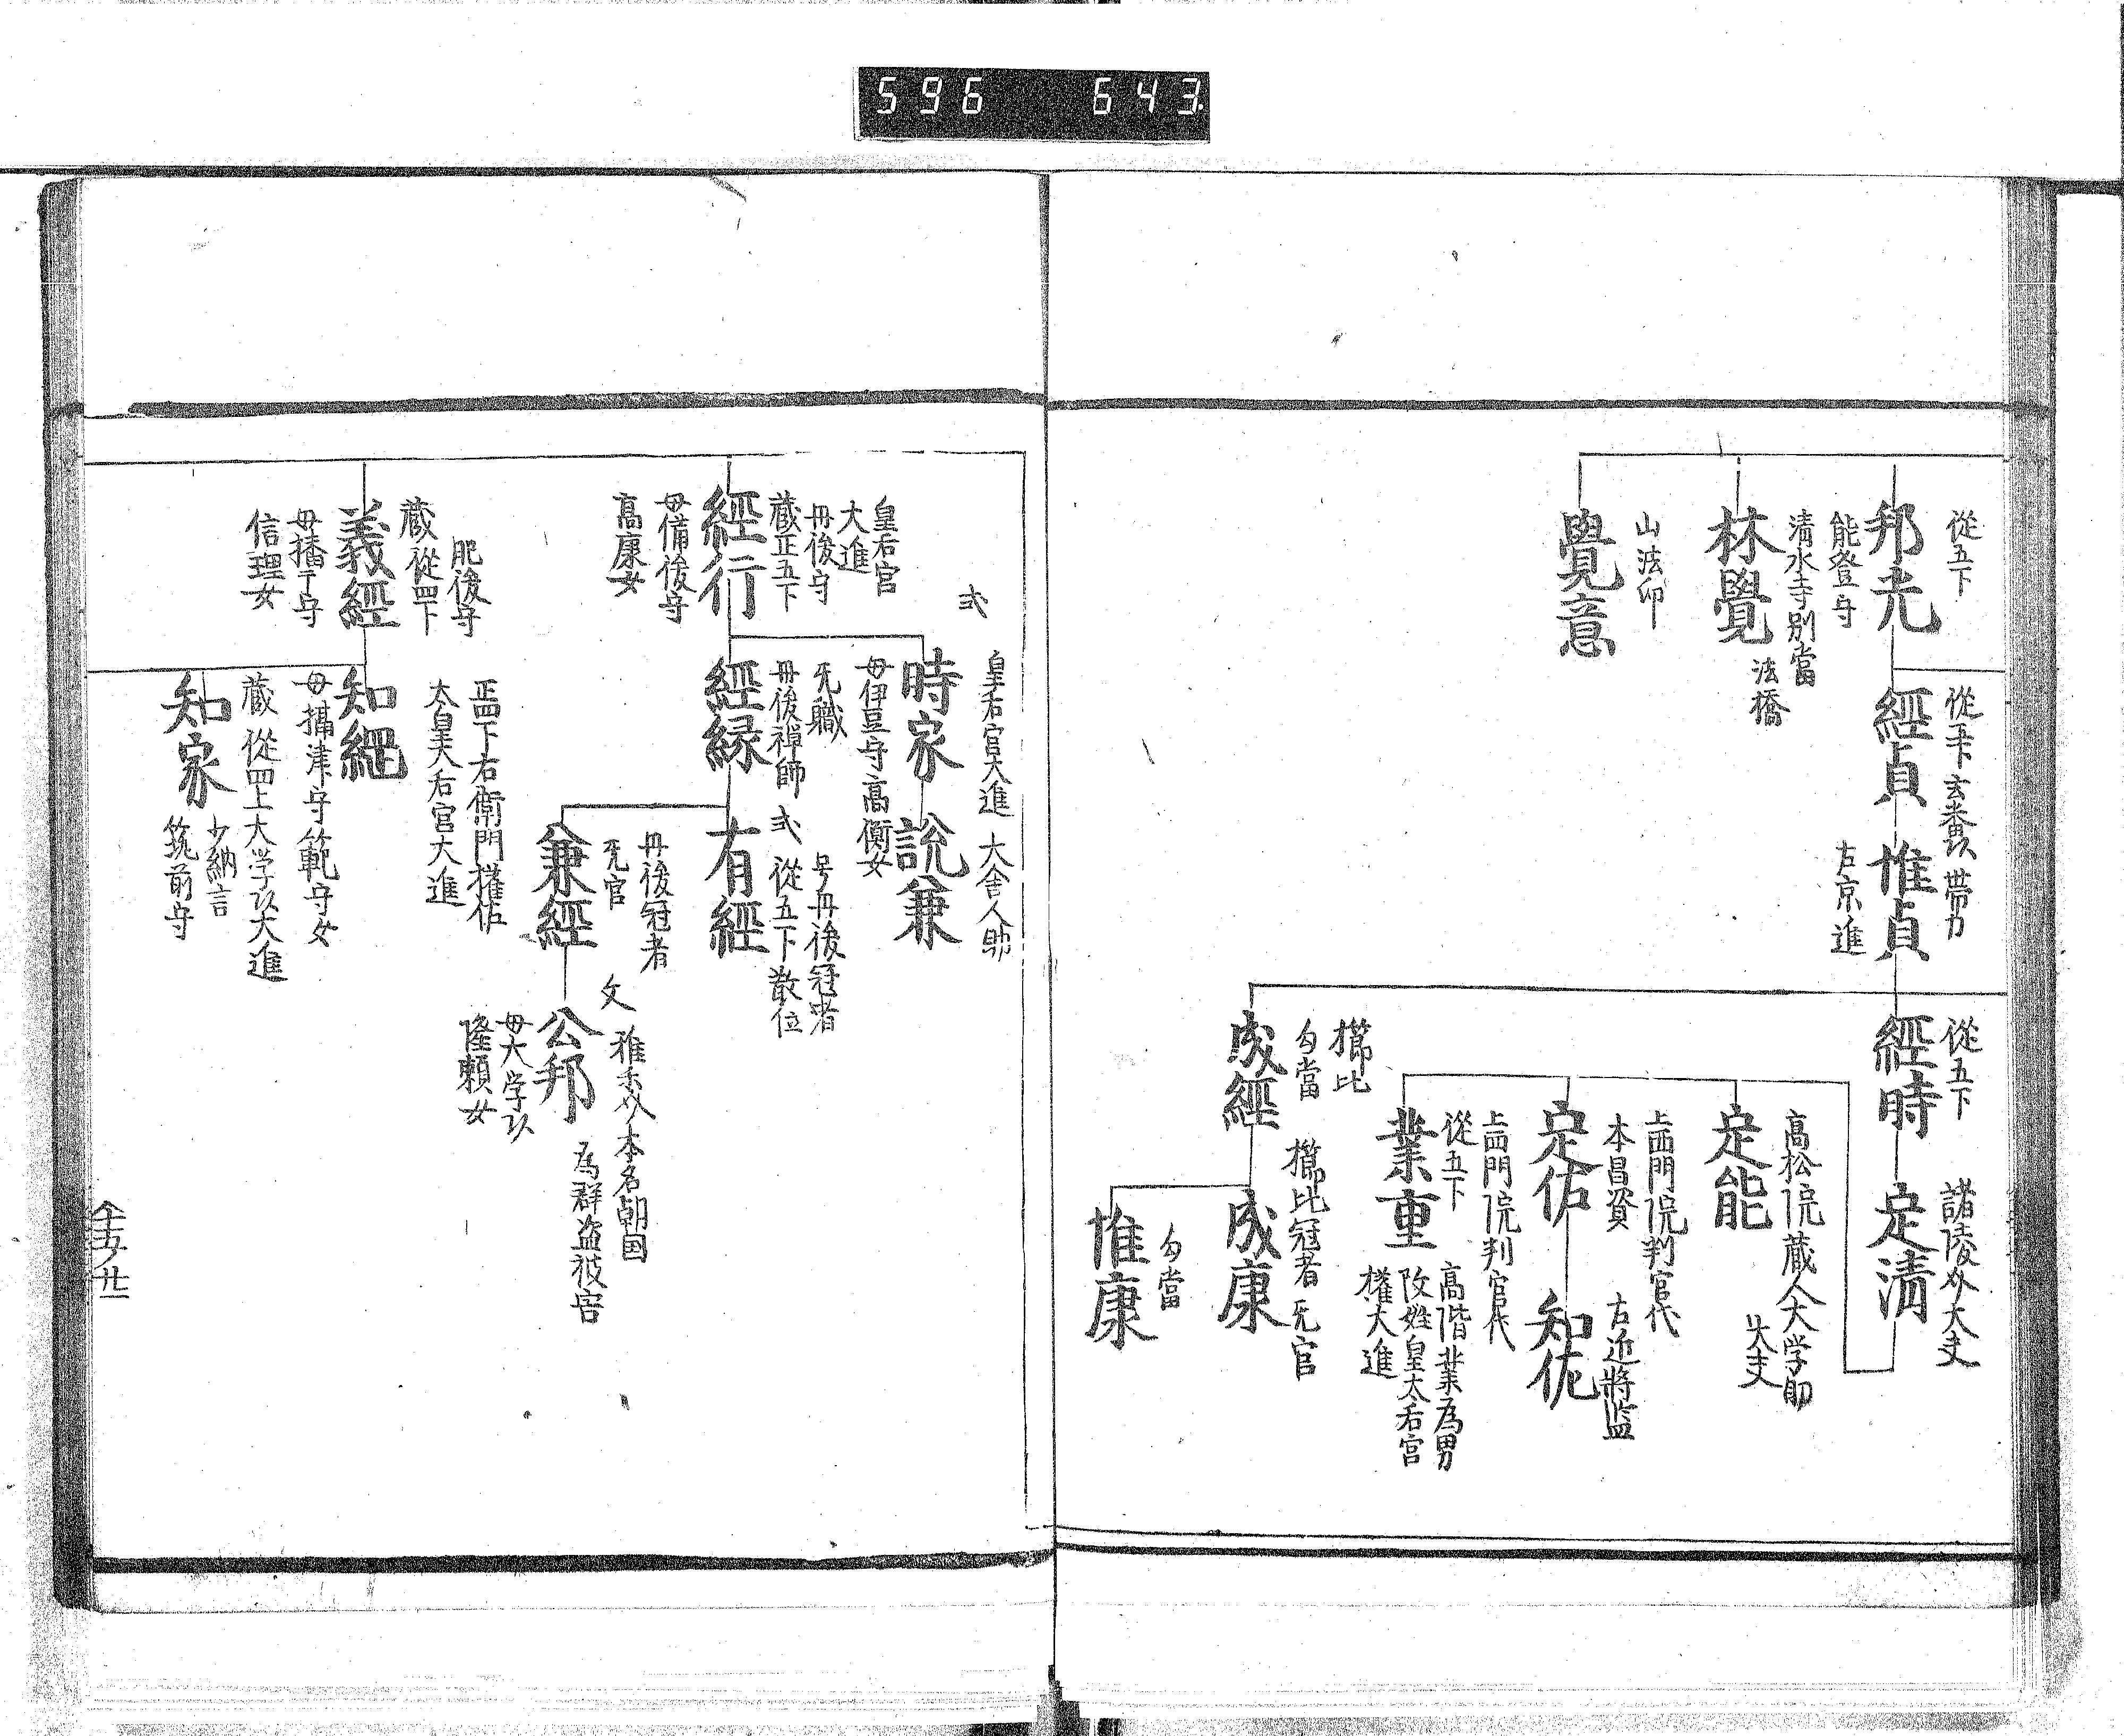 596 643
從五下
邦光
能登守
清水寺別當
林覺
法橋
山法印
覺意
從五下玄蕃頭
帯刀
經貞
惟貞
左京進
從五下
經時
諸陵允大夫
定清
高松院蔵人大学助
大夫
定能
上西門院判官代
本昌資
定佑
右近將監
知佐
上西門院判官代
從五下
業重
高階業為男
改姓皇太后宮
權大進
勾當
成經
冠者无官
成康
勾當
惟康
式
皇后宮大進
時家
母伊豆守高衡女
大舍人助
說兼
皇后宮
大進
丹後守
蔵正五下
經行
母備後守
高康女
无職
丹後禅師
經縁
号丹後冠者
式從五下散位
有經
丹後冠者
无官
兼經
文
雅 本名朝国
公邦
為群盗被害
母大学頭
隆頼女
肥後守
蔵從四下
義經
母播守
信理女
正四下右衛門權佐
太皇太后宮大進
知綱
母攝津守範守女
蔵從四上大学頭大進
知家
少納言
筑前守